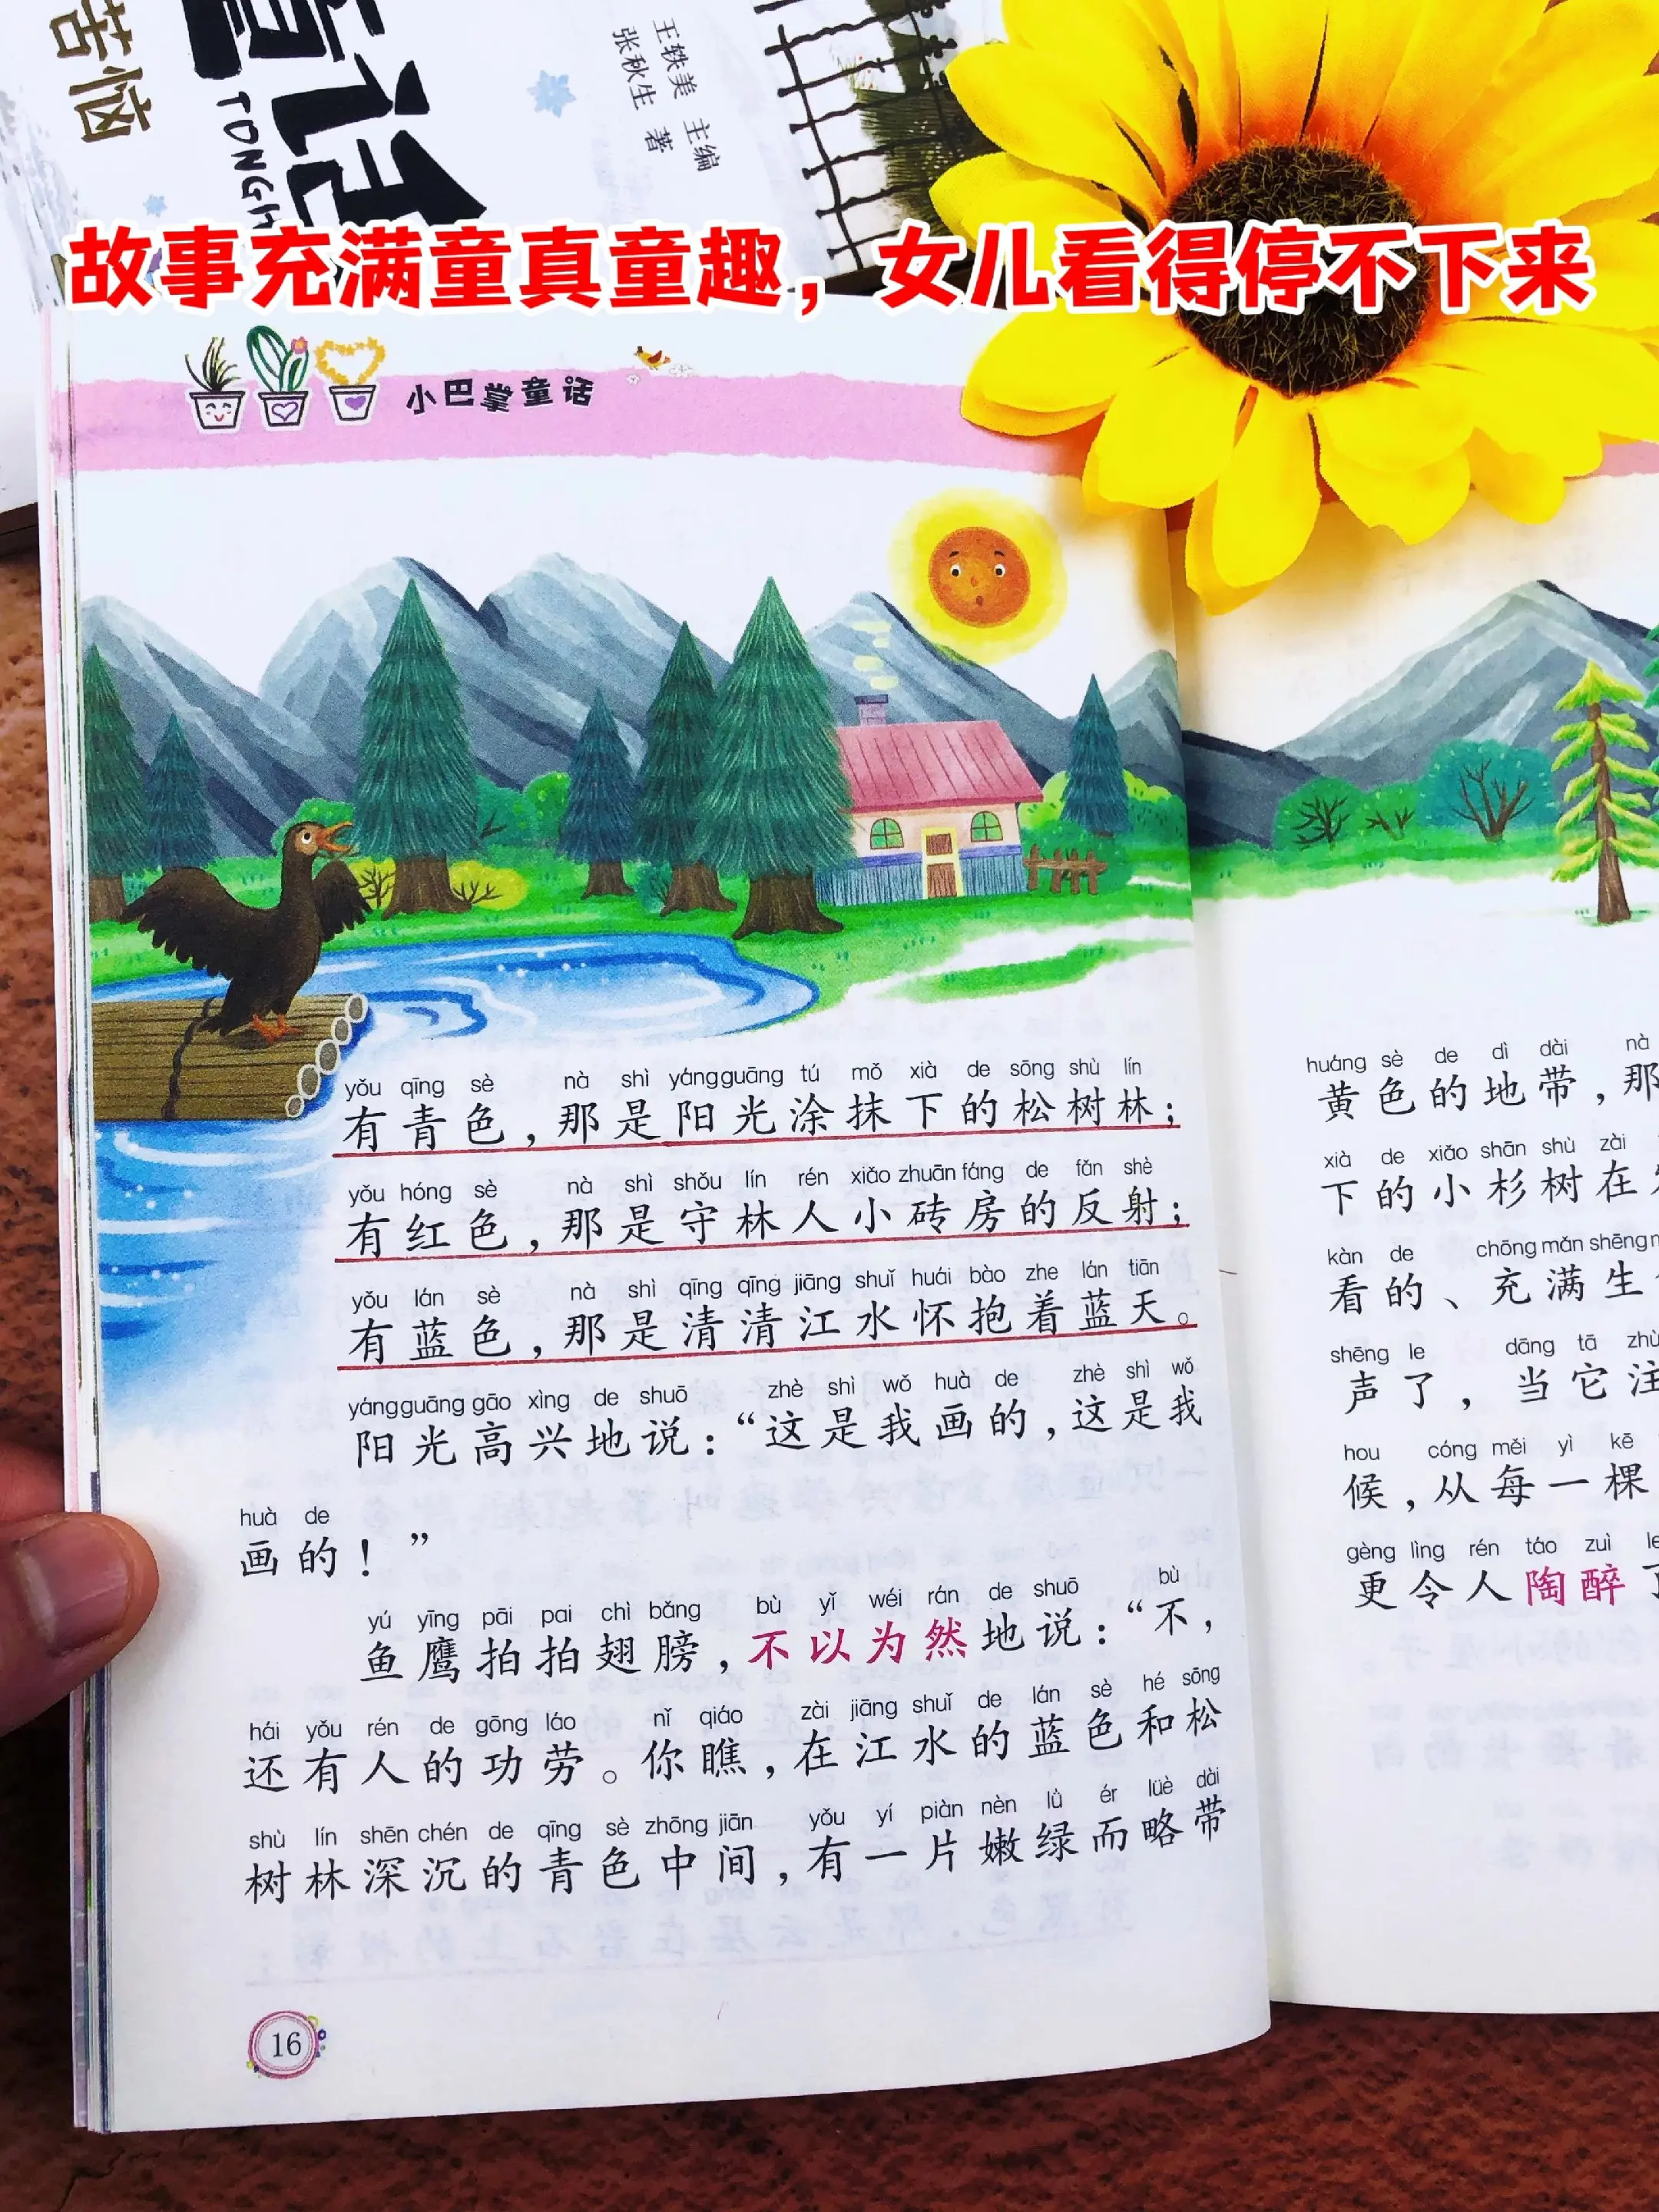 苦恼
TONGH
王轶美 主编
张秋生 著
故事充满童真童趣，女儿看得停不下来
小巴掌童话
yǒu qīng sè nà shì yáng guāng tú mǒ xià de sōng shù lín
有青色，那是阳光涂抹下的松树林；
yǒu hóng sè nà shì shǒu lín rén xiǎo zhuān fáng de fǎn shè
有红色，那是守林人小砖房的反射；
yǒu lán sè nà shì qīng qīng jiāng shuǐ huái bào zhe lán tiān
有蓝色，那是清清江水怀抱着蓝天。
yáng guāng gāo xìng de shuō zhè shì wǒ huà de zhè shì wǒ
阳光高兴地说：“这是我画的，这是我
huà de
画的！”
yú yīng pāi pai chì bǎng bù yǐ wéi rán de shuō bù
鱼鹰拍拍翅膀，不以为然地说：“不，
hái yǒu rén de gōng láo nǐ qiáo zài jiāng shuǐ de lán sè hé sōng
还有人的功劳。你瞧，在江水的蓝色和松
shù lín shēn chén de qīng sè zhōng jiān yǒu yí piàn nèn lǜ ér lüè dài
树林深沉的青色中间，有一片嫩绿而略带
16
huáng sè de dì dài nà
黄色的地带，那
xià de xiǎo shān shù zài
下的小杉树在
kàn de chōng mǎn shēng
看的、充满生
shēng le dāng tā zhù
声了，当它注
hou cóng měi yì kē
候，从每一棵
gèng lìng rén táo zuì
更令人陶醉